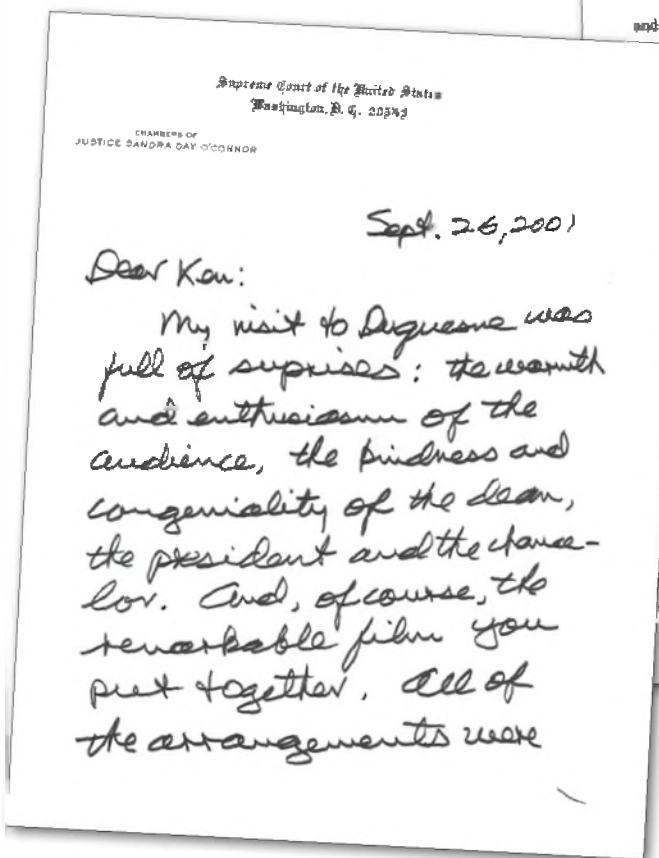 and
Supreme Court of the United States
Washington, D. C. 20543
CHAMBERS OF
JUSTICE SANDRA DAY O'CONNOR
Sept. 26, 2001
Dear Ken:
My visit to Duquesne was
full of suprises: the warmth
and enthusiasm of the
audience, the kindness and
congeniality of the dean,
the president and the chance-
lor. And, of course, the
remarkable film you
put together. All of
the arrangements were